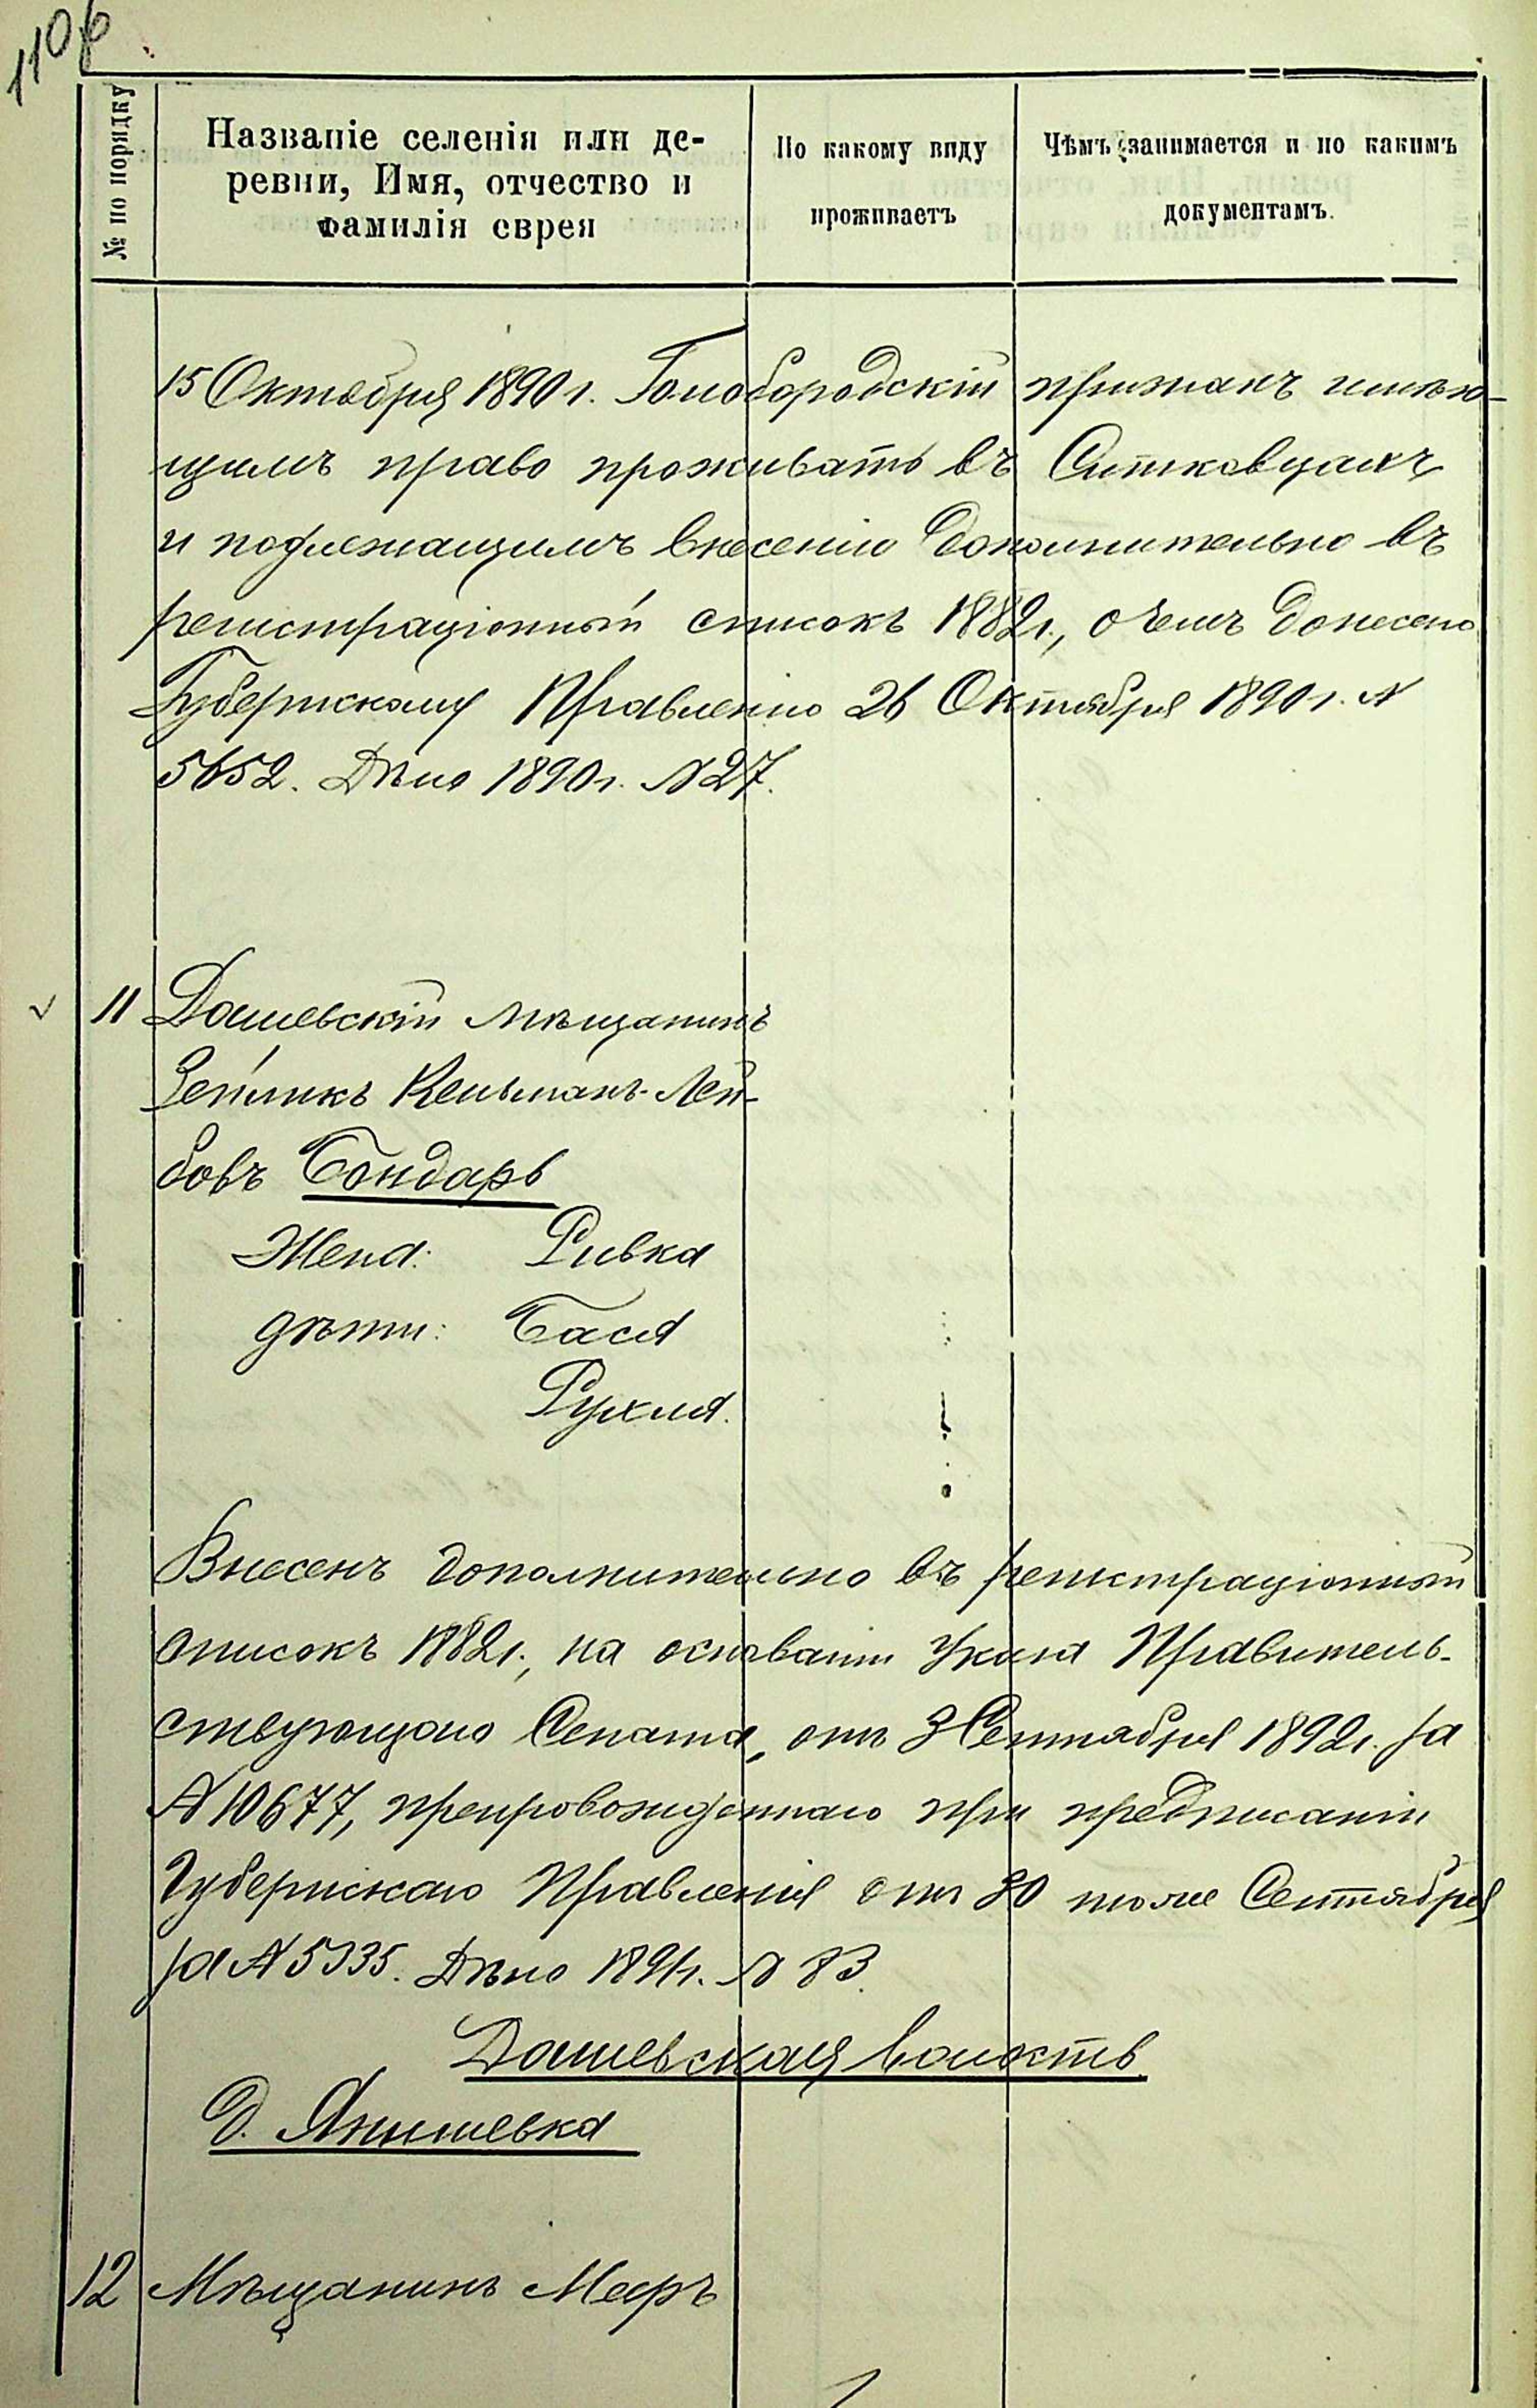 110б
№ по порядку
Названіе селенія или де-
ревни, Имя, отчество и
фамилія еврея
По какому виду
проживаетъ
Чѣмъ занимается и по какимъ
документамъ.
15 Октября 1890 г. Голобородскій признанъ имѣю-
щимъ право проживать въ Ситковцахъ
и подлежащимъ внесенію дополнительно въ
регистраціонный списокъ 1882 г., о чемъ донесено
Губернскому Правленію 26 Октября 1890 г. №
5652. Дѣло 1890 г. № 27.
11 Дашевскій мѣщанинъ
Зейликъ Кельманъ-Лей-
бовъ Бондарь
Жена: Ривка
дѣти: Бася
Рухля.
Внесенъ дополнительно въ регистраціонный
списокъ 1882 г., на основаніи Указа Правитель-
ствующаго Сената, отъ 3 Сентября 1892 г. за
№ 10677, препровожденнаго при предписаніи
Губернскаго Правленія отъ 30 того же Сентября
за № 5335. Дѣло 1891 г. № 83.
Дашевская волость.
Д. Янишевка
12 Мѣщанинъ Меръ